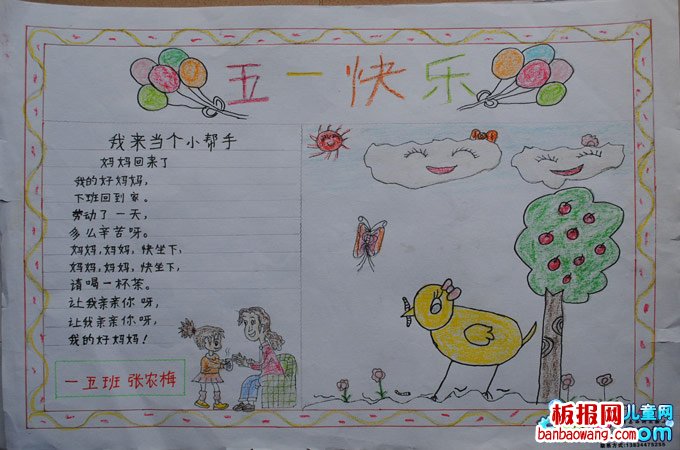 五一快乐
我来当个小帮手
妈妈回来了
我的好妈妈，
下班回到家。
劳动了一天，
多么辛苦呀。
妈妈，妈妈，快坐下，
妈妈，妈妈，快坐下，
请喝一杯茶。
让我亲亲你呀，
让我亲亲你呀，
我的好妈妈！
一五班 张农梅
板报网
儿童网
banbaowang.com